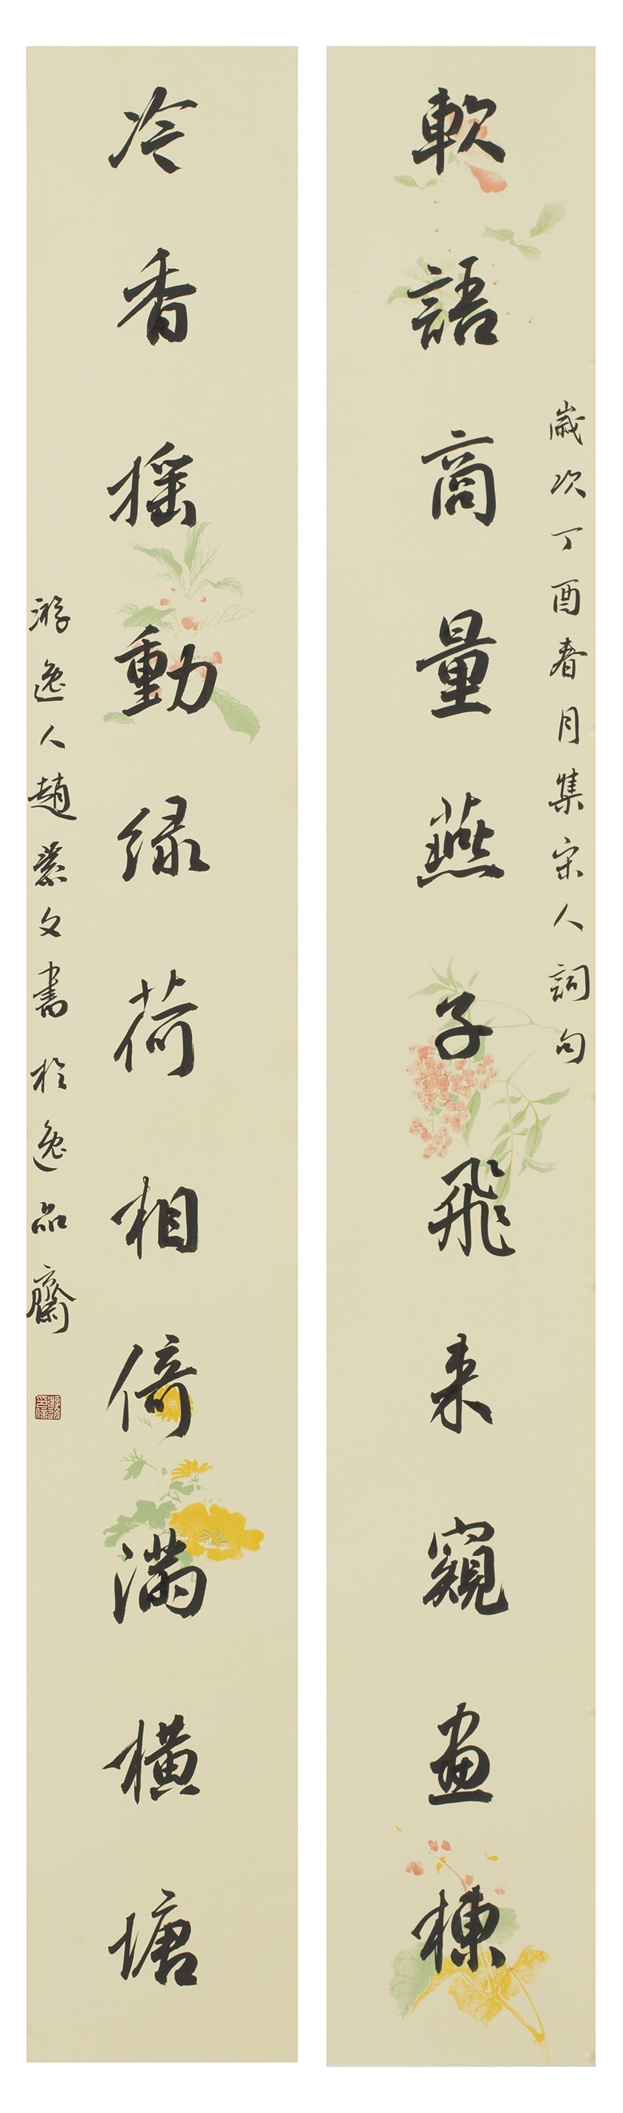 歲次丁酉春月集宋人詞句
軟語商量燕子飛来窺画棟
冷香摇動緑荷相倚滿橫塘
游逸人趙文書於逸品齋